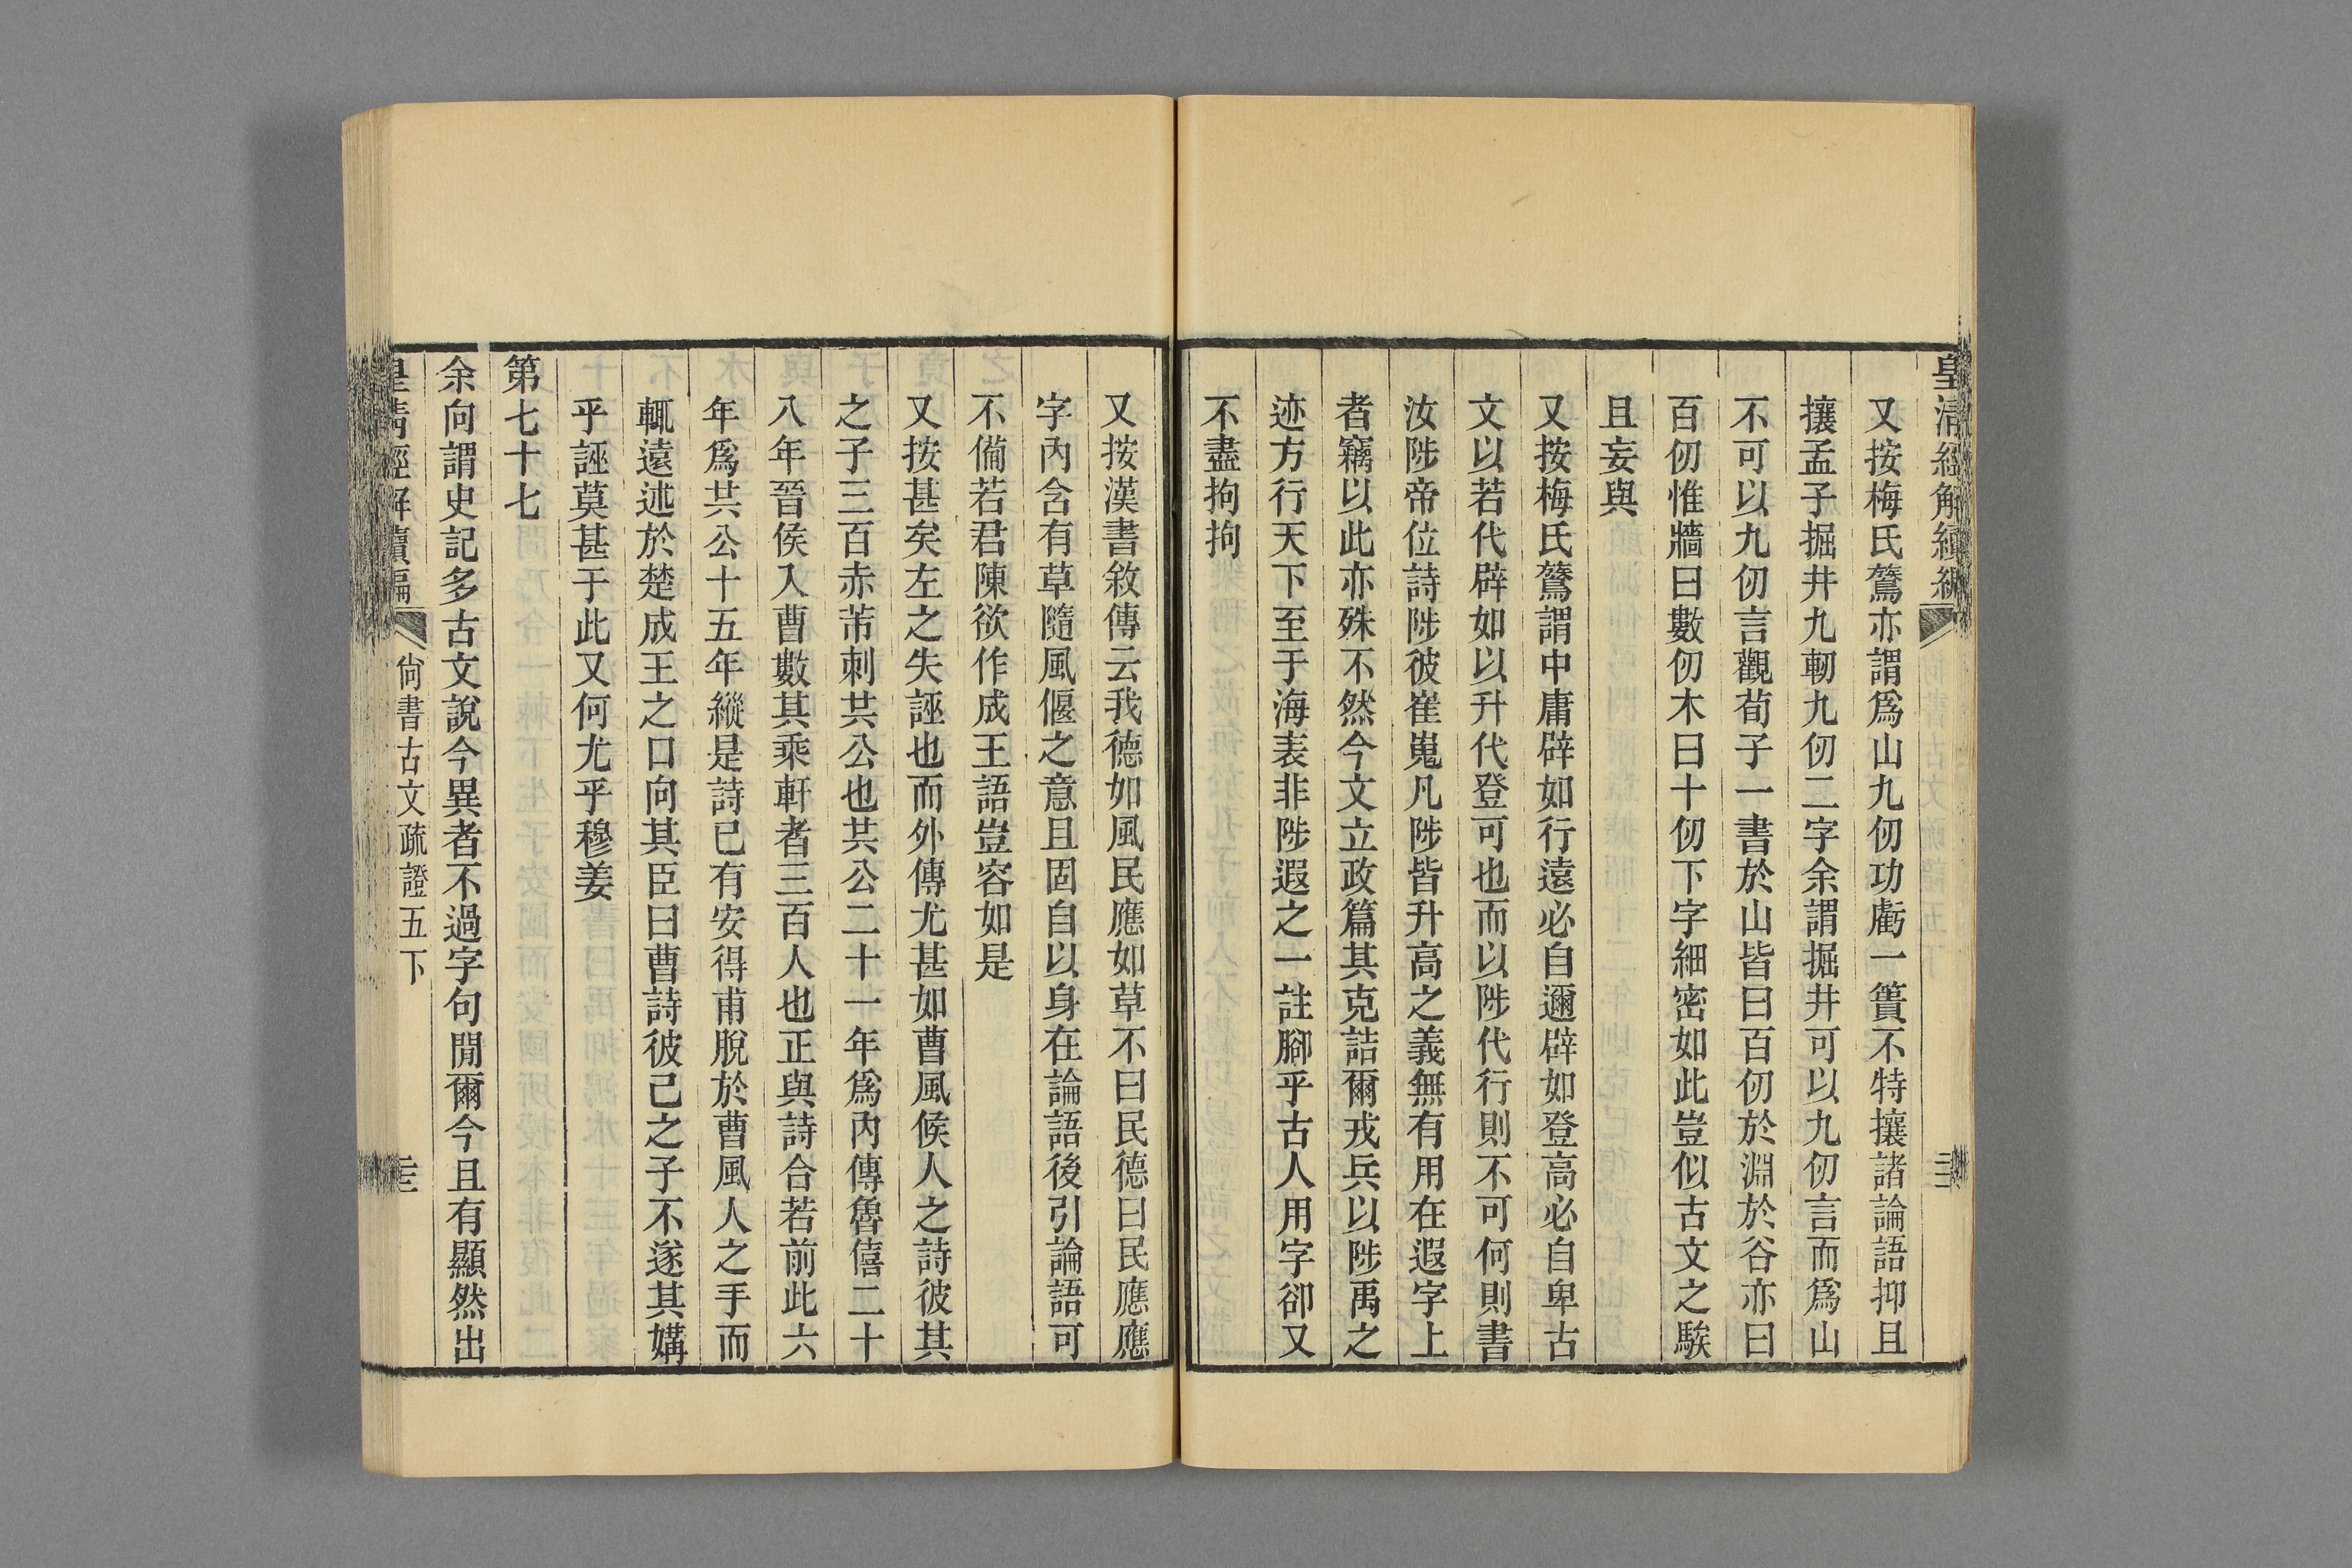 皇清經解續編
又按梅氏鷟亦謂爲山九仞功虧一簣不特攘諸論語抑且
攘孟子掘井九軔九仞二字余謂掘井可以九仞言而爲山
不可以九仞言觀荀子一書於山皆曰百仞於淵於谷亦曰
百仞惟牆曰數仞木曰十仞下字細密如此豈似古文之騃
且妄與
又按梅氏鷟謂中庸辟如行遠必自邇辟如登高必自卑古
文以若代辟如以升代登可也而以陟代行則不可何則書
汝陟帝位詩陟彼崔嵬凡陟皆升高之義無有用在遐字上
者竊以此亦殊不然今文立政篇其克詰爾戎兵以陟禹之
迹方行天下至于海表非陟遐之一註腳乎古人用字卻又
不盡拘拘
又按漢書敘傳云我德如風民應如草不曰民德曰民應應
字內含有草隨風偃之意且固自以身在論語後引論語可
不備若君陳欲作成王語豈容如是
又按甚矣左之失誣也而外傳尤甚如曹風候人之詩彼其
之子三百赤芾刺共公也共公二十一年爲內傳魯僖二十
八年晉侯入曹數其乘軒者三百人也正與詩合若前此六
年爲共公十五年縱是詩已有安得甫脫於曹風人之手而
輒遠述於楚成王之口向其臣曰曹詩彼己之子不遂其媾
乎誣莫甚于此又何尤乎穆姜
第七十七
余向謂史記多古文說今異者不過字句閒爾今且有顯然出
皇清經解續編
尙書古文疏證五下